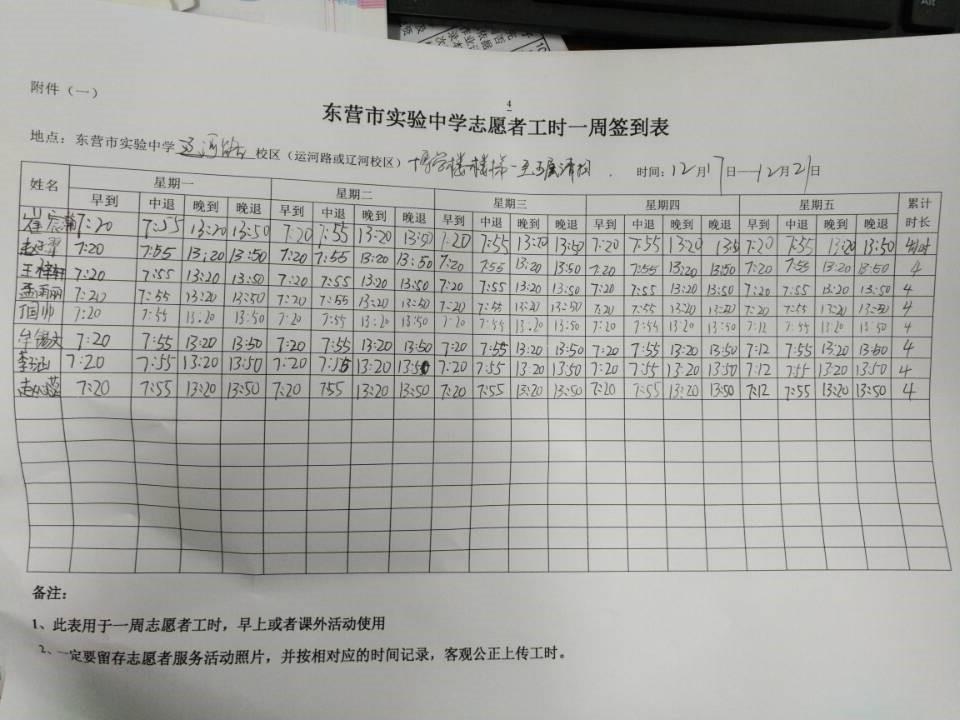 附件（一）
4
东营市实验中学志愿者工时一周签到表
地点：东营市实验中学 辽河路 校区（运河路或辽河校区）博学楼楼梯一至五层清扫． 时间：12月17日—12月21日
姓名 星期一 星期二 星期三 星期四 星期五 累计时长
早到 中退 晚到 晚退 早到 中退 晚到 晚退 早到 中退 晚到 晚退 早到 中退 晚到 晚退 早到 中退 晚到 晚退
7:20 7:55 13:20 13:50 7:20 7:55 13:20 13:50 7:20 7:55 13:20 13:50 7:20 7:55 13:20 1350 7:20 7:55 13:20 13:50 4小时
7:20 7:55 13:20 13:50 7:20 7:55 13:20 13:50 7:20 7:55 13:20 13:50 7:20 7:55 13:20 13:50 7:20 7:55 13:20 13:50 4
7:20 7:55 13:20 13:50 7:20 7:55 13:20 13:50 7:20 7:55 13:20 13:50 7:20 7:55 13:20 13:50 7:20 7:55 13:20 13:50 4
孟雨丽 7:20 7:55 13:20 13:50 7:20 7:55 13:20 13:50 7:20 7:55 13:20 13:50 7:20 7:55 13:20 13:50 7:20 7:55 13:20 13:50 4
7:20 7:55 13:20 13:50 7:20 7:55 13:20 13:50 7:20 7:55 13:20 13:50 7:20 7:55 13:20 13:50 7:12 7:55 13:20 13:50 4
7:20 7:55 13:20 13:50 7:20 7:55 13:20 13:50 7:20 7:55 13:20 13:50 7:20 7:55 13:20 13:50 7:12 7:55 13:20 13:50 4
李子涵 7:20 7:55 13:20 13:50 7:20 7:55 13:20 13:50 7:20 7:55 13:20 13:50 7:20 7:55 13:20 13:50 7:12 7:55 13:20 13:50 4
7:20 7:55 13:20 13:50 7:20 755 13:20 13:50 7:20 7:55 13:20 13:50 7:20 7:55 13:20 13:50 7:12 7:55 13:20 13:50 4
备注：
1、此表用于一周志愿者工时，早上或者课外活动使用
2、一定要留存志愿者服务活动照片，并按相对应的时间记录，客观公正上传工时。